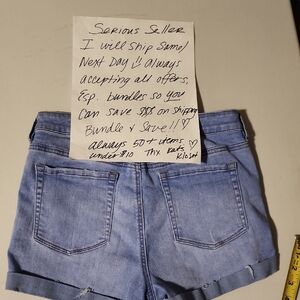 Serious Seller
I will ship Same/
Next Day always
accepting all offers,
Esp. bundles so you
Can save $$$ on shipping
Bundle & Save!! ♡
always 50+ items ♡
under $10 Thx Kats
Kloset